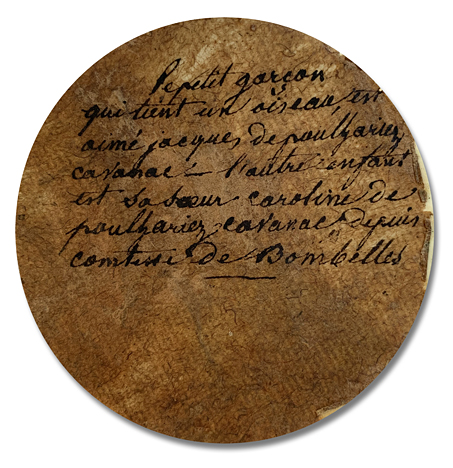 le petit garçon
qui tient un oiseau, est
aimé jacques de poulhariez
cavanac – l'autre enfant
est sa sœur caroline de
poulhariez cavanac depuis
comtesse de Bombelles